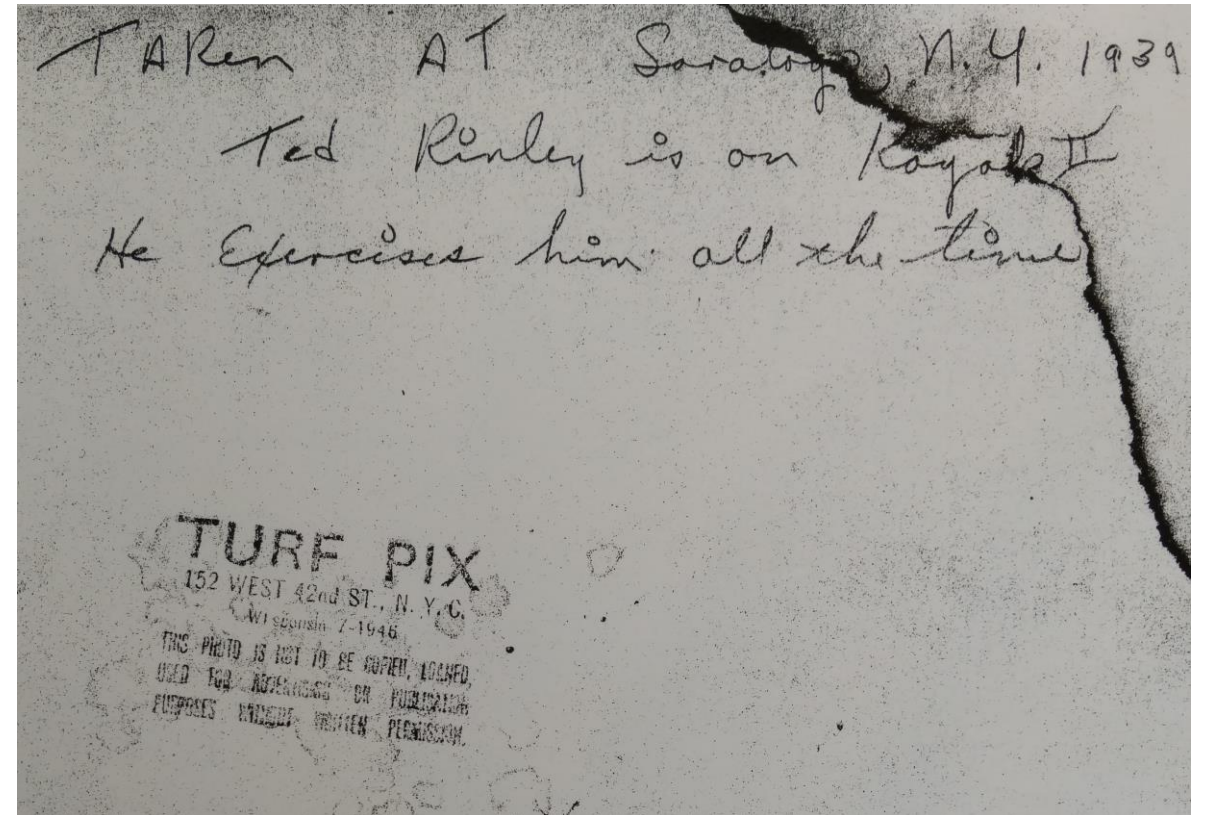 TAKen AT Saratoga, N.Y. 1939
Ted Rinley is on Kayak II
He Exercises him all the time
TURF PIX
152 WEST 42nd ST., N. Y. C.
Wisconsin 7-1946
THIS PHOTO IS NOT TO BE COPIED, LOANED,
USED FOR ADVERTISING OR PUBLICATION
PURPOSES WITHOUT WRITTEN PERMISSION.